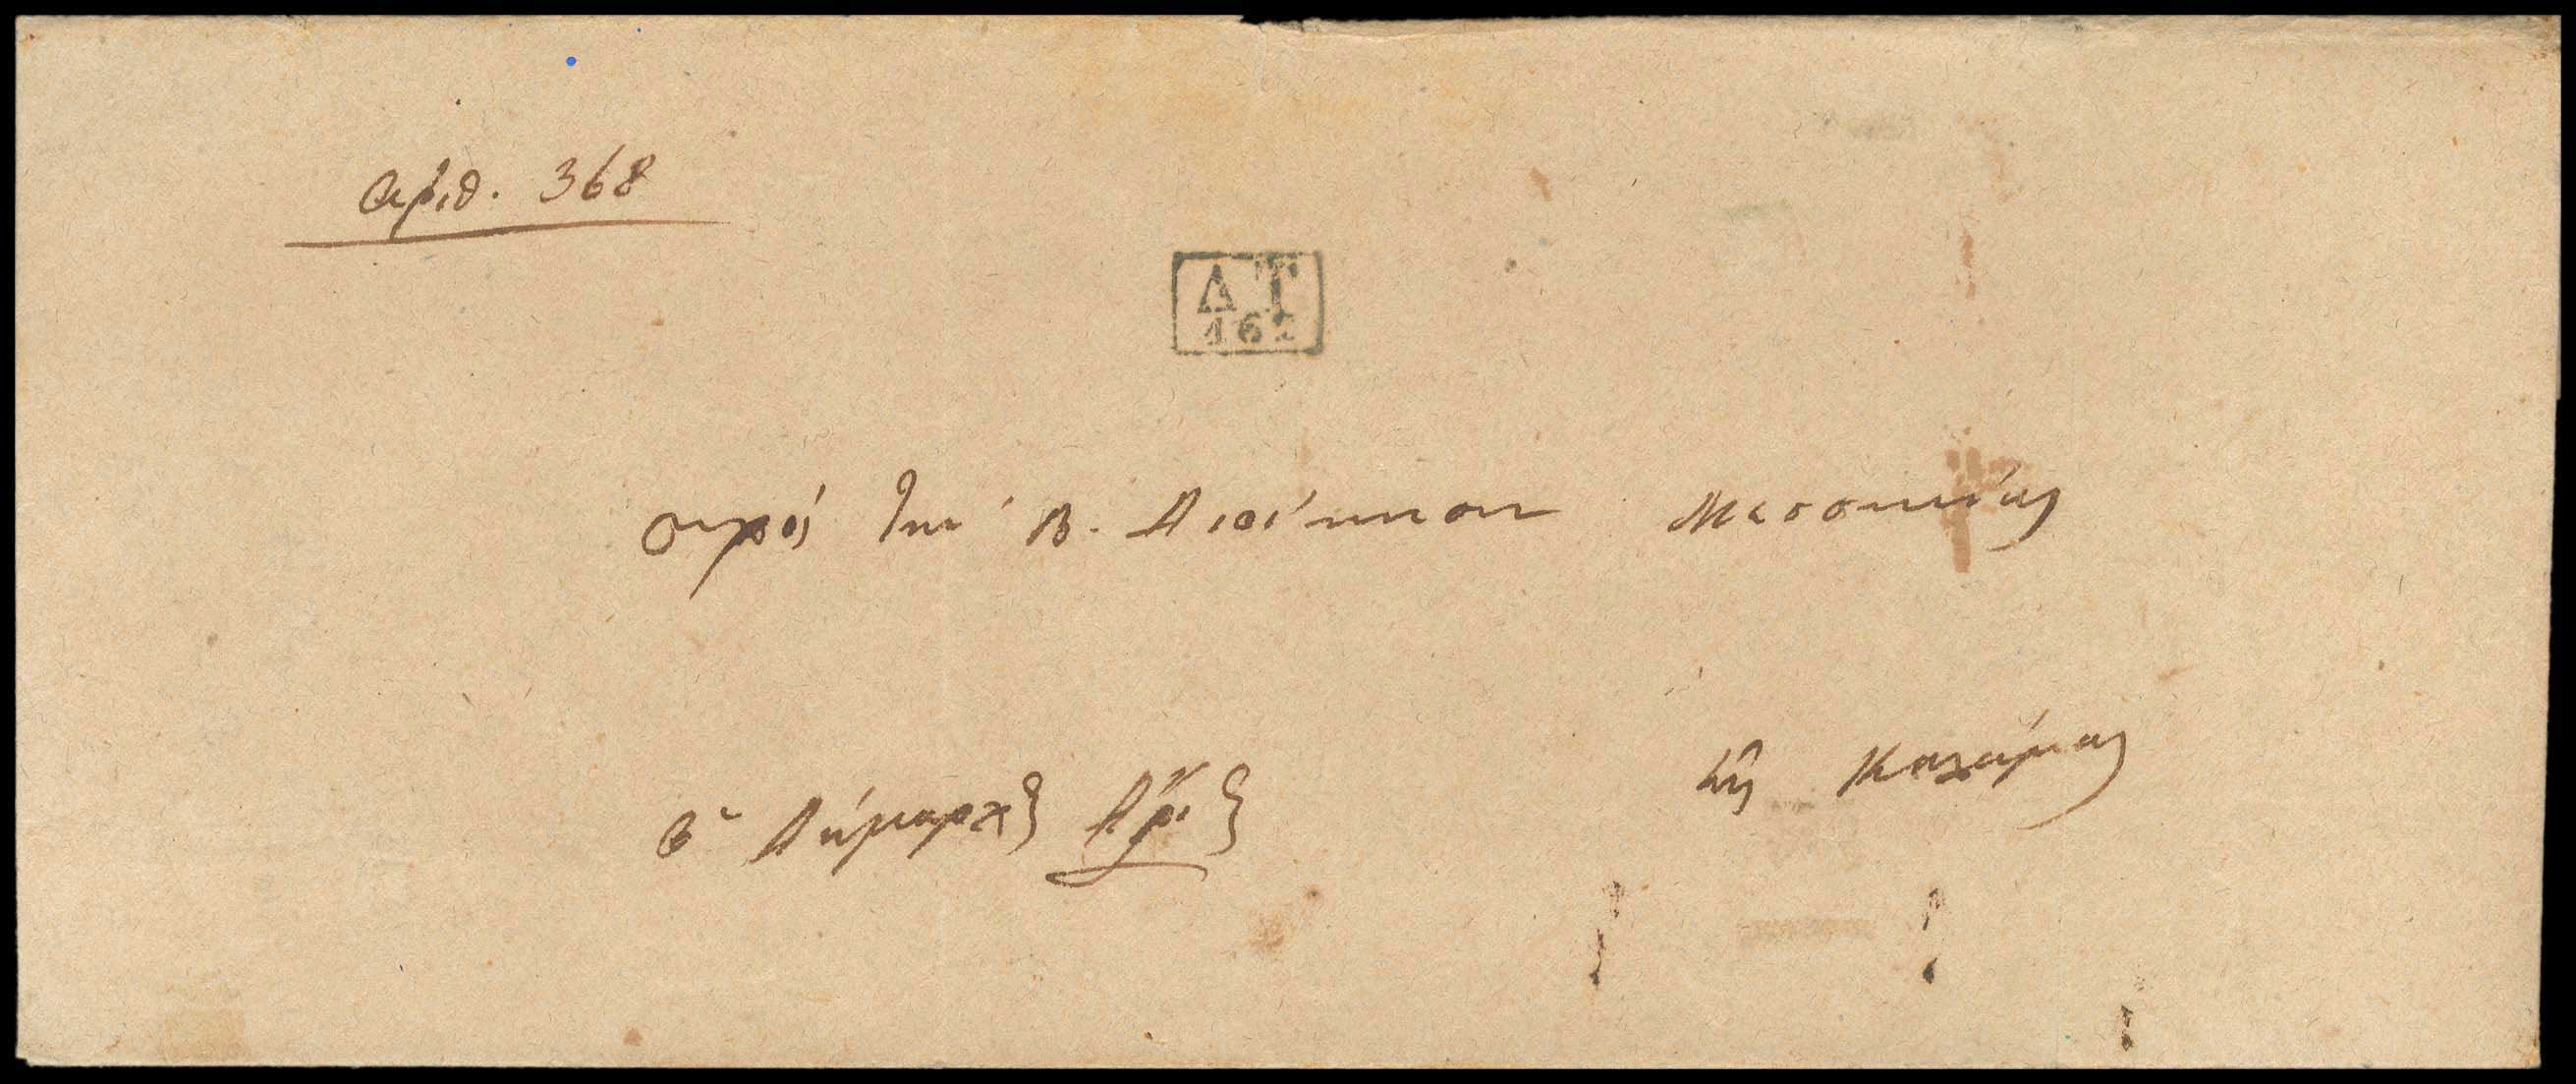 αριθ. 368
ΔΤ
162
προς την Β. Διοίκησιν Μεσσηνίας
εις Καλάμας
ο Δήμαρχος